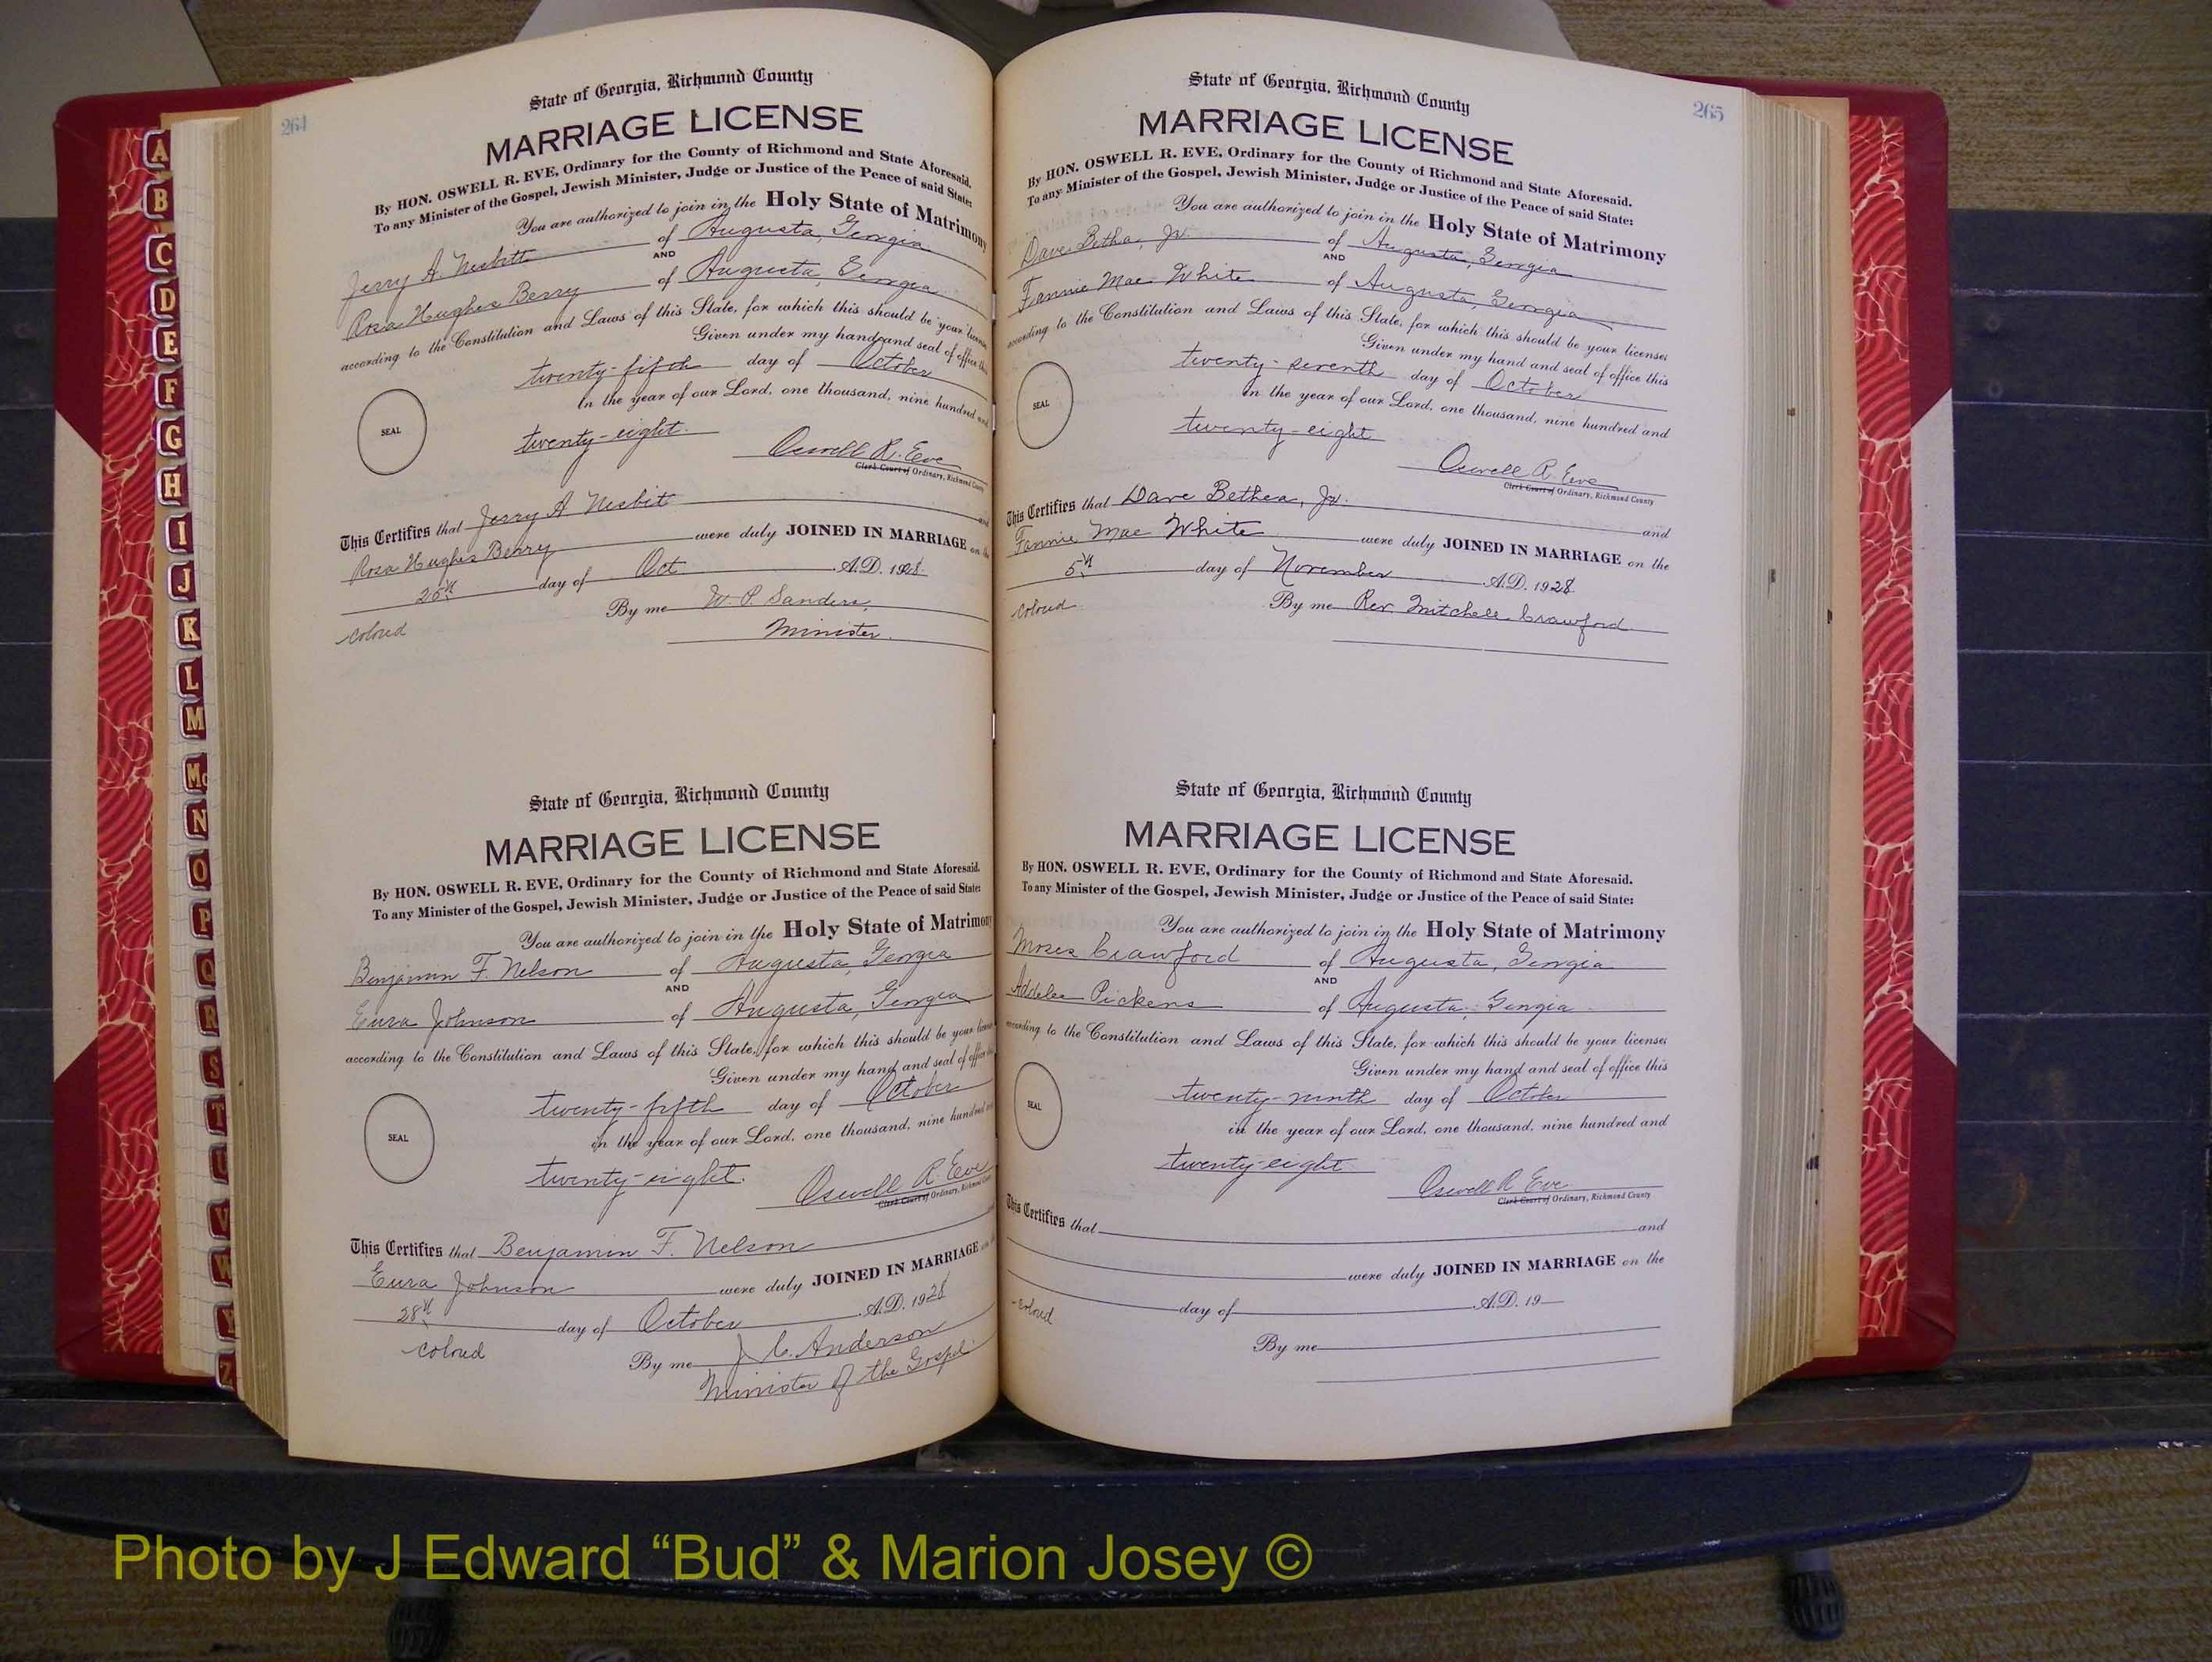 264
State of Georgia, Richmond County
MARRIAGE LICENSE
By HON. OSWELL R. EVE, Ordinary for the County of Richmond and State Aforesaid.
To any Minister of the Gospel, Jewish Minister, Judge or Justice of the Peace of said State:
You are authorized to join in the Holy State of Matrimony
Jerry A. Nesbitt of Augusta, Georgia
AND
Rosa Hughes Berry of Augusta, Georgia
according to the Constitution and Laws of this State, for which this should be your license
Given under my hand and seal of office this
twenty-fifth day of October
in the year of our Lord, one thousand, nine hundred and
SEAL
twenty-eight.
Oswell R. Eve
Clerk Court of Ordinary, Richmond County
This Certifies that Jerry A Nesbit and
Rosa Hughes Berry were duly JOINED IN MARRIAGE on the
25th day of Oct. A.D. 1928.
By me W. P. Sanders,
colored
Minister.
State of Georgia, Richmond County
MARRIAGE LICENSE
By HON. OSWELL R. EVE, Ordinary for the County of Richmond and State Aforesaid.
To any Minister of the Gospel, Jewish Minister, Judge or Justice of the Peace of said State:
You are authorized to join in the Holy State of Matrimony
Benjamin F. Nelson of Augusta, Georgia
AND
Eura Johnson of Augusta, Georgia
according to the Constitution and Laws of this State, for which this should be your license
Given under my hand and seal of office
twenty-fifth day of October
in the year of our Lord, one thousand, nine hundred
SEAL
twenty-eight.
Oswell R. Eve
Clerk Court of Ordinary, Richmond County
This Certifies that Benjamin F. Nelson
Eura Johnson were duly JOINED IN MARRIAGE on the
28th day of October A.D. 1928
colored
By me J. C. Anderson
Minister of the Gospel
265
State of Georgia, Richmond County
MARRIAGE LICENSE
By HON. OSWELL R. EVE, Ordinary for the County of Richmond and State Aforesaid.
To any Minister of the Gospel, Jewish Minister, Judge or Justice of the Peace of said State:
You are authorized to join in the Holy State of Matrimony
Dave Betha, Jr. of Augusta, Georgia
AND
Fannie Mae White of Augusta, Georgia
according to the Constitution and Laws of this State, for which this should be your license
Given under my hand and seal of office this
twenty-seventh day of October
in the year of our Lord, one thousand, nine hundred and
SEAL
twenty-eight
Oswell R. Eve
Clerk Court of Ordinary, Richmond County
This Certifies that Dave Bethea, Jr. and
Fannie Mae White were duly JOINED IN MARRIAGE on the
5th day of November A.D. 1928.
colored
By me Rev. Mitchell Crawford
State of Georgia, Richmond County
MARRIAGE LICENSE
By HON. OSWELL R. EVE, Ordinary for the County of Richmond and State Aforesaid.
To any Minister of the Gospel, Jewish Minister, Judge or Justice of the Peace of said State:
You are authorized to join in the Holy State of Matrimony
Moses Crawford of Augusta, Georgia
AND
Addelee Pickens of Augusta, Georgia
according to the Constitution and Laws of this State, for which this should be your license
Given under my hand and seal of office this
twenty-ninth day of October
in the year of our Lord, one thousand, nine hundred and
SEAL
twenty-eight
Oswell R. Eve
Clerk Court of Ordinary, Richmond County
This Certifies that and
were duly JOINED IN MARRIAGE on the
colored
day of A.D. 19
By me
A
B
C
D
E
F
G
H
I
J
K
L
M
Mc
N
O
P
Q
R
S
T
U
V
W
Y
Z
Photo by J Edward “Bud” & Marion Josey ©